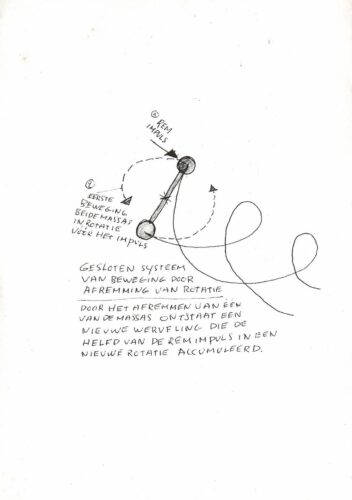 ② REM
IMPULS
①
EERSTE
BEWEGING
BEIDE MASSAS
IN ROTATIE
VOOR HET IMPULS
GESLOTEN SYSTEEM
VAN BEWEGING DOOR
AFREMMING VAN ROTATIE
DOOR HET AFREMMEN VAN ÉÉN
VAN DE MASSAS ONTSTAAT EEN
NIEUWE WERVELING DIE DE
HELFD VAN DE REMIMPULS IN EEN
NIEUWE ROTATIE ACCUMULEERD.